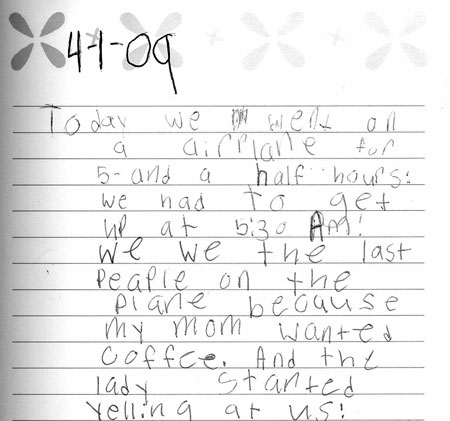 4-1-09
Today we went on
a airplane for
5-and a half hours!
we had to get
up at 5:30 AM!
we we the last
peaple on the
plane because
my mom wanted
coffee. And the
lady started
yelling at us!